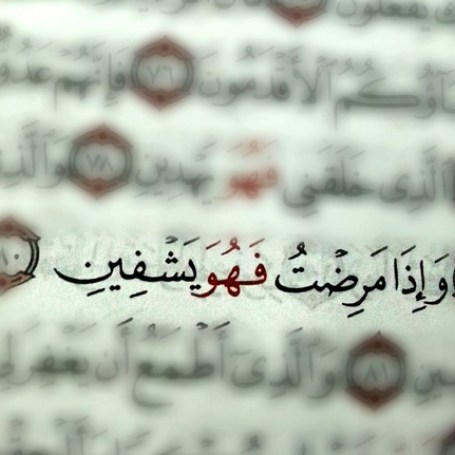 يَفْعَلُونَ
ؤُكُمُ الْأَقْدَمُونَ ٧٦ فَإِنَّهُمْ عَدُوٌّ
الَّذِي خَلَقَنِي فَهُوَ يَهْدِينِ ٧٨ وَالَّذِي
وَإِذَا مَرِضْتُ فَهُوَ يَشْفِينِ ٨٠
ـينِ ٨١ وَالَّذِي أَطْمَعُ أَن يَغْفِرَ لِي